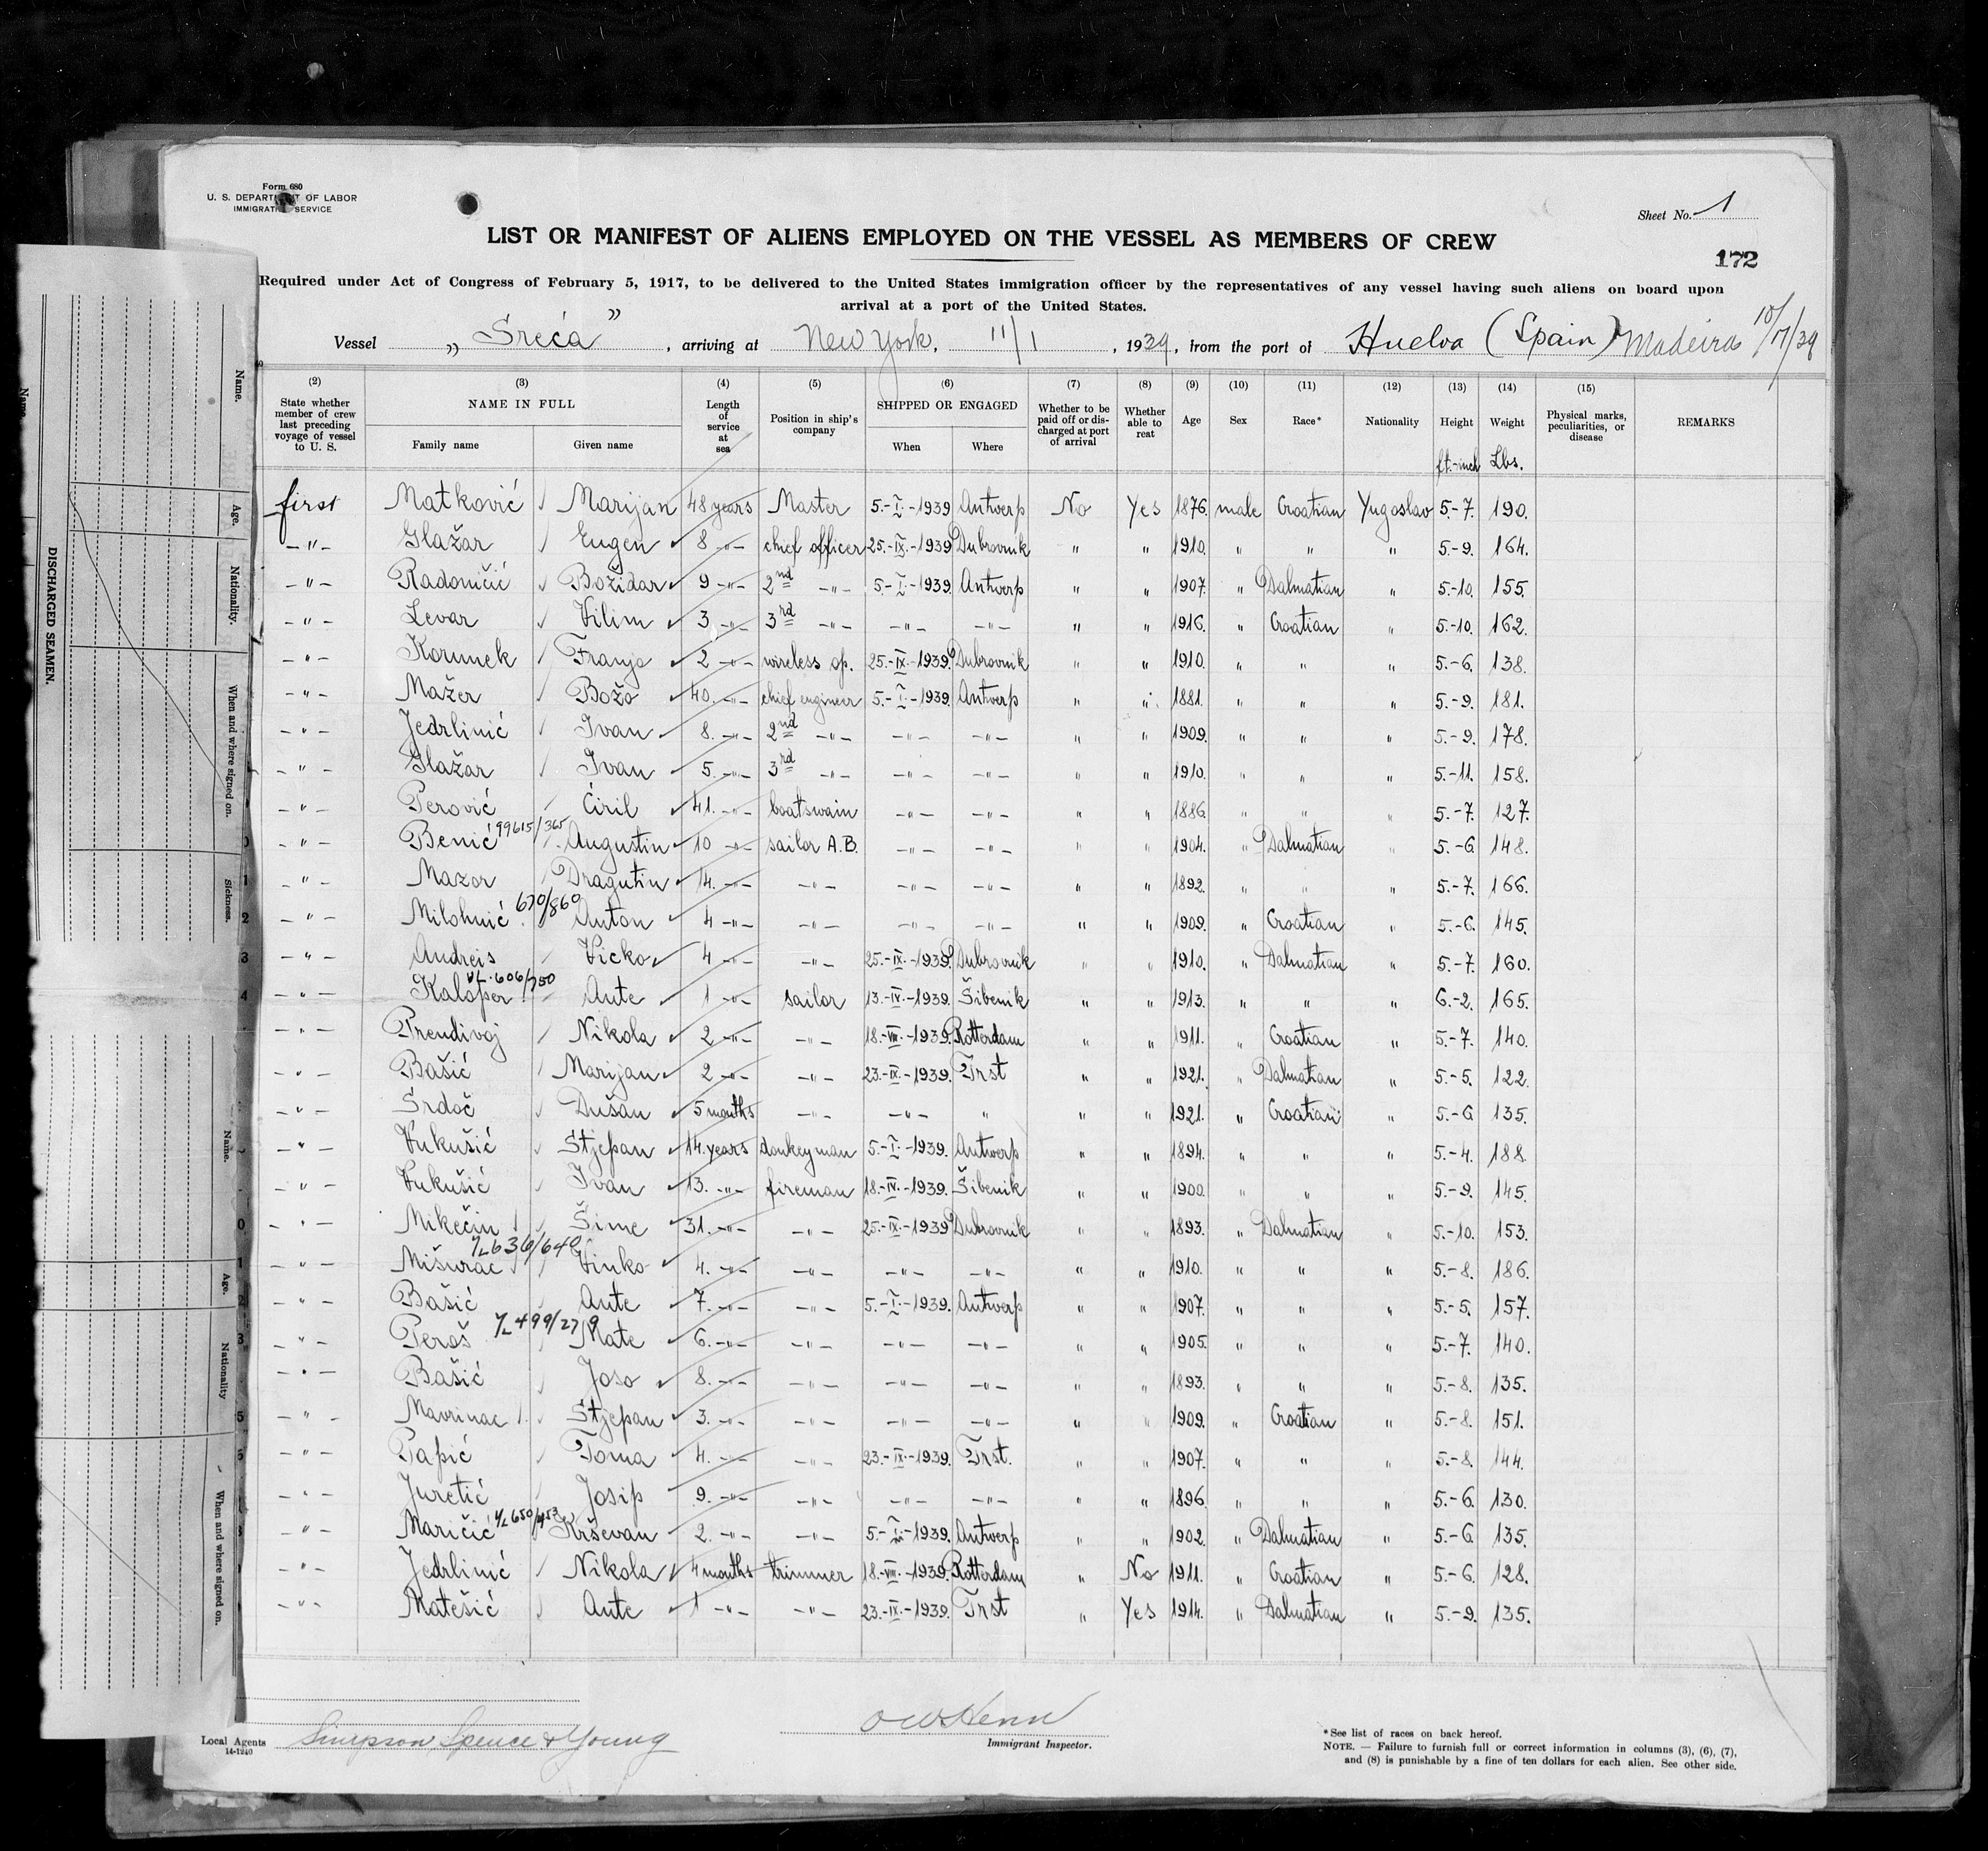 Form 680
U. S. DEPARTMENT OF LABOR
IMMIGRATION SERVICE
Sheet No. 1
LIST OR MANIFEST OF ALIENS EMPLOYED ON THE VESSEL AS MEMBERS OF CREW
172
Required under Act of Congress of February 5, 1917, to be delivered to the United States immigration officer by the representatives of any vessel having such aliens on board upon
arrival at a port of the United States.
Vessel „ Sreća ” , arriving at New York, 11/1 , 1939, from the port of Huelva (Spain) Madeira 10/17/39
(2) (3) (4) (5) (6) (7) (8) (9) (10) (11) (12) (13) (14) (15)
State whether member of crew last preceding voyage of vessel to U. S. NAME IN FULL Family name Given name Length of service at sea Position in ship's company SHIPPED OR ENGAGED When Where Whether to be paid off or discharged at port of arrival Whether able to reat Age Sex Race* Nationality Height Weight Physical marks, peculiarities, or disease REMARKS
ft.-inch Lbs.
first Matković Marijan 48 years Master 5.-I.-1939 Antwerp No Yes 1876. male Croatian Yugoslav 5.-7. 190.
-"- Glažar Eugen 8 -"- chief officer 25.-IX.-1939 Dubrovnik " " 1910. " " " 5.-9. 164.
-"- Radoničić Božidar 9 -"- 2nd -"- 5.-I.-1939. Antwerp " " 1907. " Dalmatian " 5.-10. 155.
-"- Levar Vilim 3 -"- 3rd -"- -"- -"- " " 1916. " Croatian " 5.-10. 162.
-"- Korunek Franjo 2 -"- wireless op. 25.-IX.-1939. Dubrovnik " " 1910. " " " 5.-6. 138.
-"- Mažer Božo 40. -"- chief engineer 5.-I.-1939. Antwerp " " 1881. " " " 5.-9. 181.
-"- Jedrlinić Ivan 8. -"- 2nd -"- -"- -"- " " 1909. " " " 5.-9. 178.
-"- Glažar Ivan 5. -"- 3rd -"- -"- -"- " " 1910. " " " 5.-11. 158.
-"- Perović Ćiril 41. -"- boatswain -"- -"- " " 1886. " " " 5.-7. 127.
-"- Benić 99615/365 Augustin 10 -"- sailor A.B. -"- -"- " " 1904. " Dalmatian " 5.-6 148.
-"- Mazor Dragutin 14. -"- -"- -"- -"- " " 1892. " " " 5.-7. 166.
-"- Milohnić 670/860 Anton 4 -"- -"- -"- -"- " " 1909. " Croatian " 5.-6. 145.
-"- Andreis Vicko 4 -"- -"- 25.-IX.-1939. Dubrovnik " " 1910. " Dalmatian " 5.-7. 160.
-"- Kaloper 606/750 Ante 1 -"- sailor 13.-IV.-1939. Šibenik " " 1913. " " " 6.-2. 165.
-"- Prendivoj Nikola 2 -"- -"- 18.-VIII.-1939. Rotterdam " " 1911. " Croatian " 5.-7. 140.
-"- Bašić Marijan 2 -"- -"- 23.-IX.-1939. Trst " " 1921. " Dalmatian " 5.-5. 122.
-"- Srdoč Dušan 5 months -"- -"- " " " 1921. " Croatian " 5.-6 135.
-"- Vukušić Stjepan 14. years donkeyman 5.-I.-1939. Antwerp " " 1894. " " " 5.-4. 188.
-"- Vukušić Ivan 13. -"- fireman 18.-IV.-1939. Šibenik " " 1900. " " " 5.-9. 145.
-"- Mikečin Šime 31. -"- -"- 25.-IX.-1939 Dubrovnik " " 1893. " Dalmatian " 5.-10. 153.
-"- Mišurac 636/640 Vinko 4. -"- -"- -"- -"- " " 1910. " " " 5.-8. 186.
-"- Bašić Ante 7. -"- -"- 5.-I.-1939. Antwerp " " 1907. " " " 5.-5. 157.
-"- Peroš 499/279 Mate 6. -"- -"- -"- -"- " " 1905. " " " 5.-7. 140.
-"- Bašić Joso 8. -"- -"- -"- -"- " " 1893. " " " 5.-8. 135.
-"- Mavrinac Stjepan 3. -"- -"- -"- -"- " " 1909. " Croatian " 5.-8. 151.
-"- Papić Toma 4. -"- -"- 23.-IX.-1939. Trst. " " 1907. " " " 5.-8. 144.
-"- Juretić Josip 9. -"- -"- -"- -"- " " 1896. " " " 5.-6. 130.
-"- Maričić 650/453 Krševan 2. -"- -"- 5.-I.-1939. Antwerp " " 1902. " Dalmatian " 5.-6. 135.
-"- Jedrlinić Nikola 4 months trimmer 18.-VIII.-1939. Rotterdam " No 1911. " Croatian " 5.-6. 128.
-"- Matešić Ante 1 -"- -"- 23.-IX.-1939. Trst " Yes 1914. " Dalmatian " 5.-9. 135.
Local Agents Simpson, Spence & Young
14-1240
Immigrant Inspector.
*See list of races on back hereof.
NOTE. — Failure to furnish full or correct information in columns (3), (6), (7),
and (8) is punishable by a fine of ten dollars for each alien. See other side.
DISCHARGED SEAMEN.
Name.
Age.
Nationality.
When and where signed on.
Sickness.
Name.
Age.
Nationality
When and where signed on.
Name.